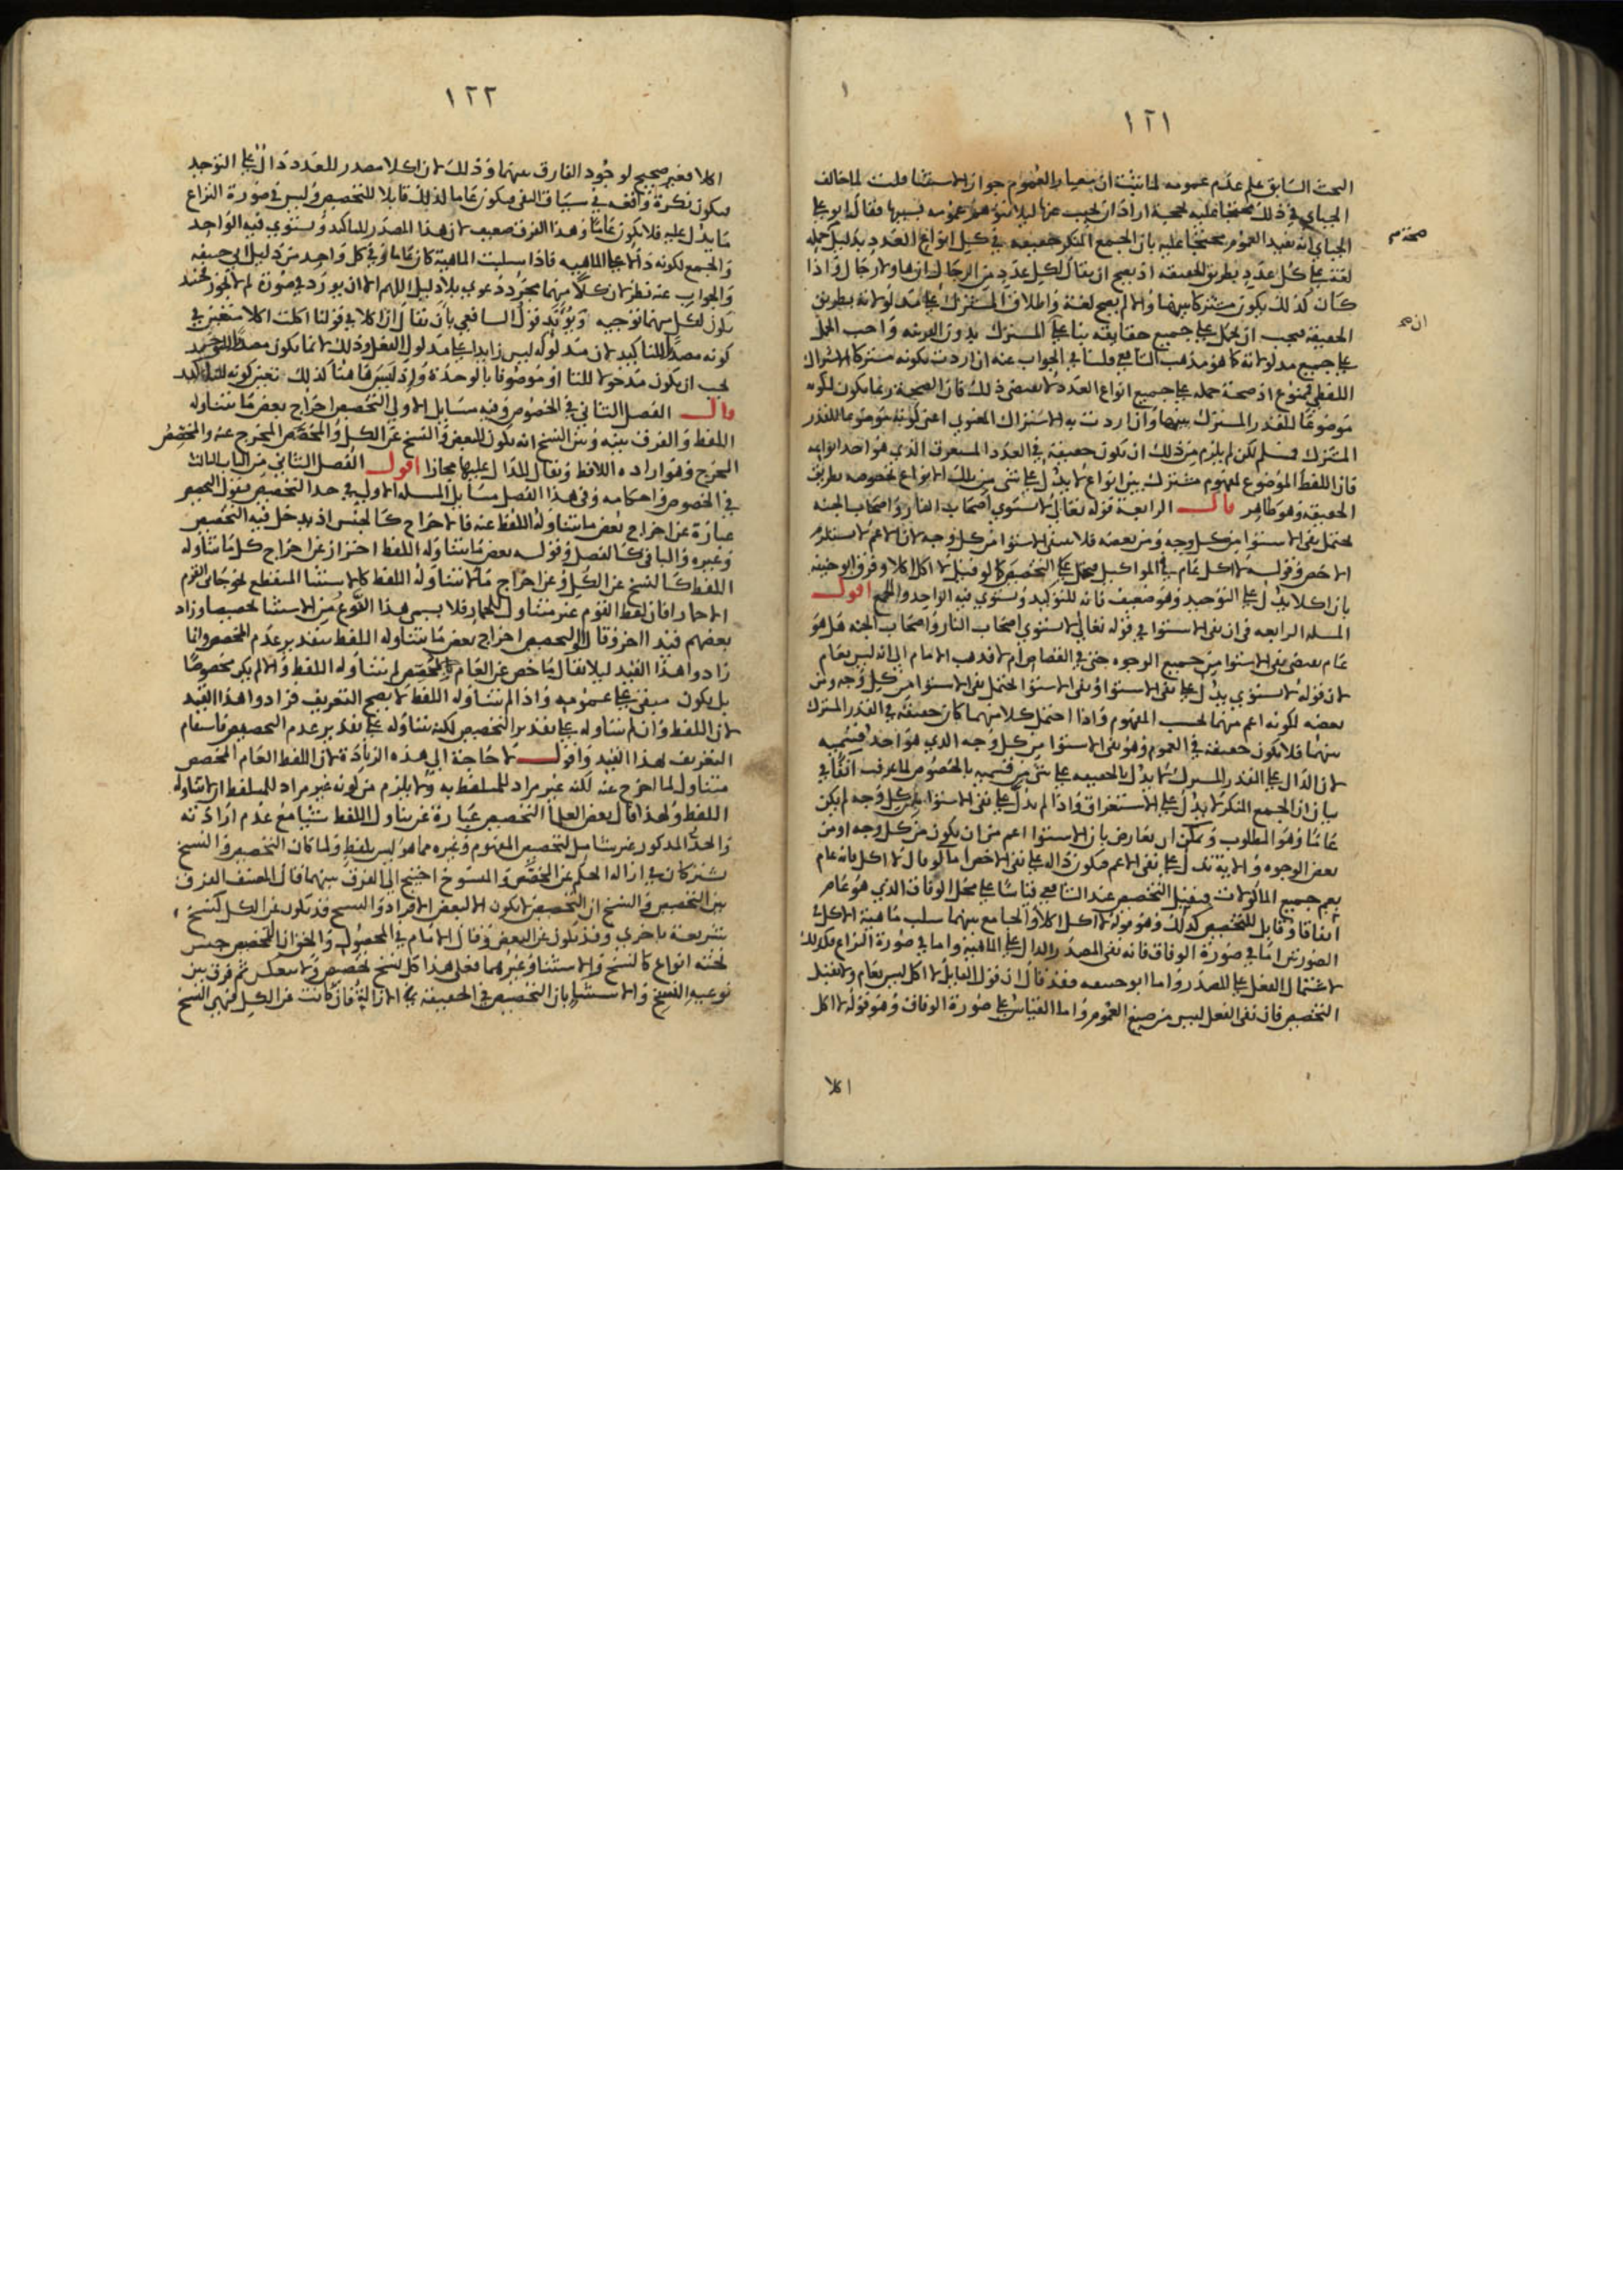 ١٢١
البحث السابق علم عدم عمومه لما ثبت ان معيار العموم جواز الاستثنا قلت لما خالف
الجباي في ذلك محتجا عليه بحجة اراد ان يجيب عنها ليلا يتوهم عمومه بسببها فقال ابو علي
الجباي انه يفيد العموم محتجا عليه بان الجمع المنكر حقيقة في كل انواع العدد بدليل حمله
لغة على كل عدد بطريق الحقيقه اذ يصح ان يقال لكل عدد من الرجال انها ولا رجال واذا
كان كذلك يكون مشتركا بينها والا لم يصح لغة واطلاق المشترك على مدلولاته بطريق
الحقيقة فيجب ان يحمل على جميع حقايقه بنا على المشترك بدون القرينه واجب الحمل
على جميع مدلولاته كما هو مذهب الشافعي قلنا في الجواب عنه ان اردت بكونه مشتركا الاشتراك
اللفظي فممنوع اذ صحة حمله على جميع انواع العدد لا يقتضي ذلك فان الصحة ربما يكون لكونه
موضوعا للقدر المشترك بينها وان اردت به الاشتراك المعنوي اعني كونه موضوعا للقدر
المشترك فمسلم لكن لم يلزم من ذلك ان يكون حقيقة في العدد المستغرق الذي هو احد انواعه
فان اللفظ الموضوع لمفهوم مشترك بين انواع لا يدل على شي من تلك الانواع بخصوصه بطريق
الحقيقه وهو ظاهر قال الرابعة قوله تعالى لا يستوي اصحاب النار واصحاب الجنه
يحتمل نفي الاستوا من كل وجه ومن بعضه فلا ينفي الاستوا من كل وجه لان الاعم لا يستلزم
الاخص وقوله لا اكل عام في المواكيل فيحمل على التخصيص كما لو قيل لا اكل اكلا وفرق ابو حنيفه
بان اكلا يدل على التوحيد وهو ضعيف فانه للتوكيد ويستوي فيه الواحد والجمع اقول
المسله الرابعه في ان نفي الاستوا في قوله تعالى لا يستوي اصحاب النار واصحاب الجنه هل هو
عام يقتضي نفي الاستوا من جميع الوجوه حتى في القصاص ام لا فذهب الامام الى انه ليس بعام
لان قوله لا يستوي يدل على نفي الاستوا ونفي الاستوا يحتمل نفي الاستوا من كل وجه ومن
بعضه لكونه اعم منهما بحسب المفهوم واذا احتمل كلا منهما كان حقيقة في القدر المشترك
بينهما فلا يكون حقيقة في العموم وهو نفي الاستوا من كل وجه الذي هو احد قسميه
لان الدال على القدر المشترك لا يدل بالحقيقه على شي من قسميه بالخصوص لما عرفت انفا في
بيان ان الجمع المنكر لا يدل على الاستغراق واذا لم يدل على نفي الاستوا من كل وجه لم يكن
عاما وهو المطلوب ويمكن ان يعارض بان الاستوا اعم من ان يكون من كل وجه او من
بعض الوجوه والاية تدل على نفي الاعم فيكون دالة على نفي الاخص اما لو قال لا اكل فانه عام
يعم جميع الماكولات فيقبل التخصيص عند الشافعي قياسا على محل الوفاق الذي هو عام
اتفاقا وقابل للتخصيص كذلك وهو قوله لا اكل اكلا والجامع بينهما سلب ماهية الاكل في
الصورتين اما في صورة الوفاق فانه نفي المصدر الدال على الماهية واما في صورة النزاع فكذلك
لاشتمال الفعل على المصدر واما ابو حنيفه فقد قال ان قول القايل لا اكل ليس بعام ولا يقبل
التخصيص فان نفي الفعل ليس من صيغ العموم واما القياس على صورة الوفاق وهو قوله لا اكل
اكلا
١٢٢
اكلا فغير صحيح لوجود الفارق بينهما وذلك لان اكلا مصدر للعدد دال على التوحد
فيكون نكرة واقعه في سياق النفي فيكون عاما لذلك قابلا للتخصيص وليس في صورة النزاع
ما يدل عليه فلا يكون عاما وهذا الفرق ضعيف لان هذا المصدر للتاكيد ويستوي فيه الواحد
والجمع لكونه دالا على الماهيه فاذا سلبت الماهية كان عاما وفي كل واحد من دليل ابي حنيفه
والجواب عنه نظر لان كلا منهما مجرد دعوى بلا دليل اللهم الا ان يورد في صورة
يكون لكل منهما توجيه ويؤيد قول الشافعي بان يقال ان اكلا في قولنا اكلت اكلا متعين في
كونه مصدرا للتاكيد لان مدلوله ليس زايدا على مدلول الفعل وذلك لانما يكون مصدرا للتوحيد
يجب ان يكون مدخولا للتا او موصوفا بالوحدة واذ ليس هاهنا كذلك تعين كونه للتاكيد
قال الفصل الثاني في الخصوص وفيه مسايل الاولى التخصيص اخراج بعض ما يتناوله
اللفظ والفرق بينه وبين النسخ انه يكون للبعض والنسخ عن الكل والمخصص المخرج عنه والمخصص
المخرج وهو اراده اللافظ ويقال للدال عليها مجازا اقول الفصل الثاني من الباب الثالث
في الخصوص واحكامه وفي هذا الفصل مسايل المسله الاولى في حد التخصيص فنقول التخصيص
عبارة عن اخراج بعض ما يتناوله اللفظ عنه فالاخراج كالجنس اذ يدخل فيه التخصيص
وغيره والباقي كالفصل وقوله بعض ما يتناوله اللفظ احتراز عن اخراج كل ما يتناوله
اللفظ كالنسخ عن الكل وعن اخراج ما لا يتناوله اللفظ كالاستثنا المنقطع نحو جاني القوم
الا حمارا فان لفظ القوم غير متناول للحمار فلا يسمى هذا النوع من الاستثنا تخصيصا وزاد
بعضهم قيدا اخر وقالوا التخصيص اخراج بعض ما يتناوله اللفظ بتقدير عدم المخصص وانما
زادوا هذا القيد ليلا يقال ما خص عن العام بالمخصص لم يتناوله اللفظ والا لم يكن مخصوصا
بل يكون مبقى على عمومه واذا لم يتناوله اللفظ لا يصح التعريف فزادوا هذا القيد
لان اللفظ وان لم يتناوله على تقدير التخصيص لكنه يتناوله على تقدير عدم التخصيص فاستقام
التعريف بهذا القيد واقول لا حاجة الى هذه الزيادة لان اللفظ العام المخصص
متناول لما اخرج عنه لكنه غير مراد للمتلفظ به ولا يلزم من كونه غير مراد للمتلفظ ان لا يتناوله
اللفظ ولهذا قال بعض العلما التخصيص عبارة عن تناول اللفظ شيا مع عدم ارادته
والحد المذكور غير شامل لتخصيص المفهوم وغيره مما هو ليس بلفظ ولما كان التخصيص والنسخ
يشتركان في ازالة الحكم عن المخصص والمنسوخ احتيج الى الفرق بينهما قال المصنف الفرق
بين التخصيص والنسخ ان التخصيص لا يكون الا لبعض الافراد والنسخ قد يكون عن الكل كنسخ
شريعة باخرى وقد يكون عن البعض وقال الامام في المحصول والحق ان التخصيص جنس
تحته انواع كالنسخ والاستثنا وغيرهما فعلى هذا كل نسخ تخصيص ولا ينعكس ثم فرق بين
نوعيه النسخ والاستثنا بان التخصيص في الحقيقة هي الازالة فان كانت عن الكل فهي النسخ